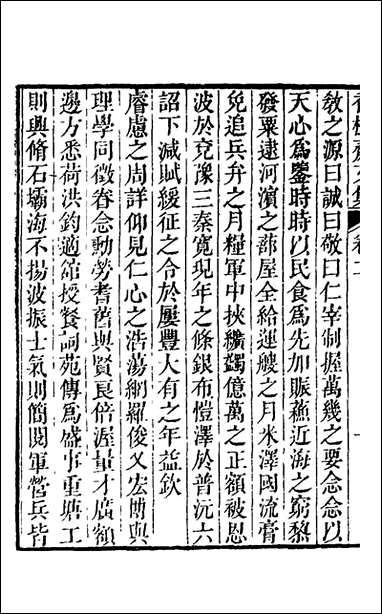 香樹齋文集　卷二
教之源曰誠曰敬曰仁宰制握萬幾之要念念以
天心為鑒時時以民食為先加賑蘓近海之窮黎
發粟逮河濱之蔀屋全給運艘之月米澤國流膏
免追兵弁之月糧軍中挾纊蠲億萬之正額被恩
波於兗豫三秦寬現年之條銀布愷澤於普沅六
詔下減賦緩征之令於屢豐大有之年益欽
睿慮之周詳仰見仁心之浩蕩網羅俊乂宏博與
理學同徵眷念勳勞耆舊與賢良倍渥量才廣額
邊方悉荷洪鈞適館授餐詞苑傳為盛事重塘工
則興脩石壩海不揚波振士氣則簡閱軍營兵皆